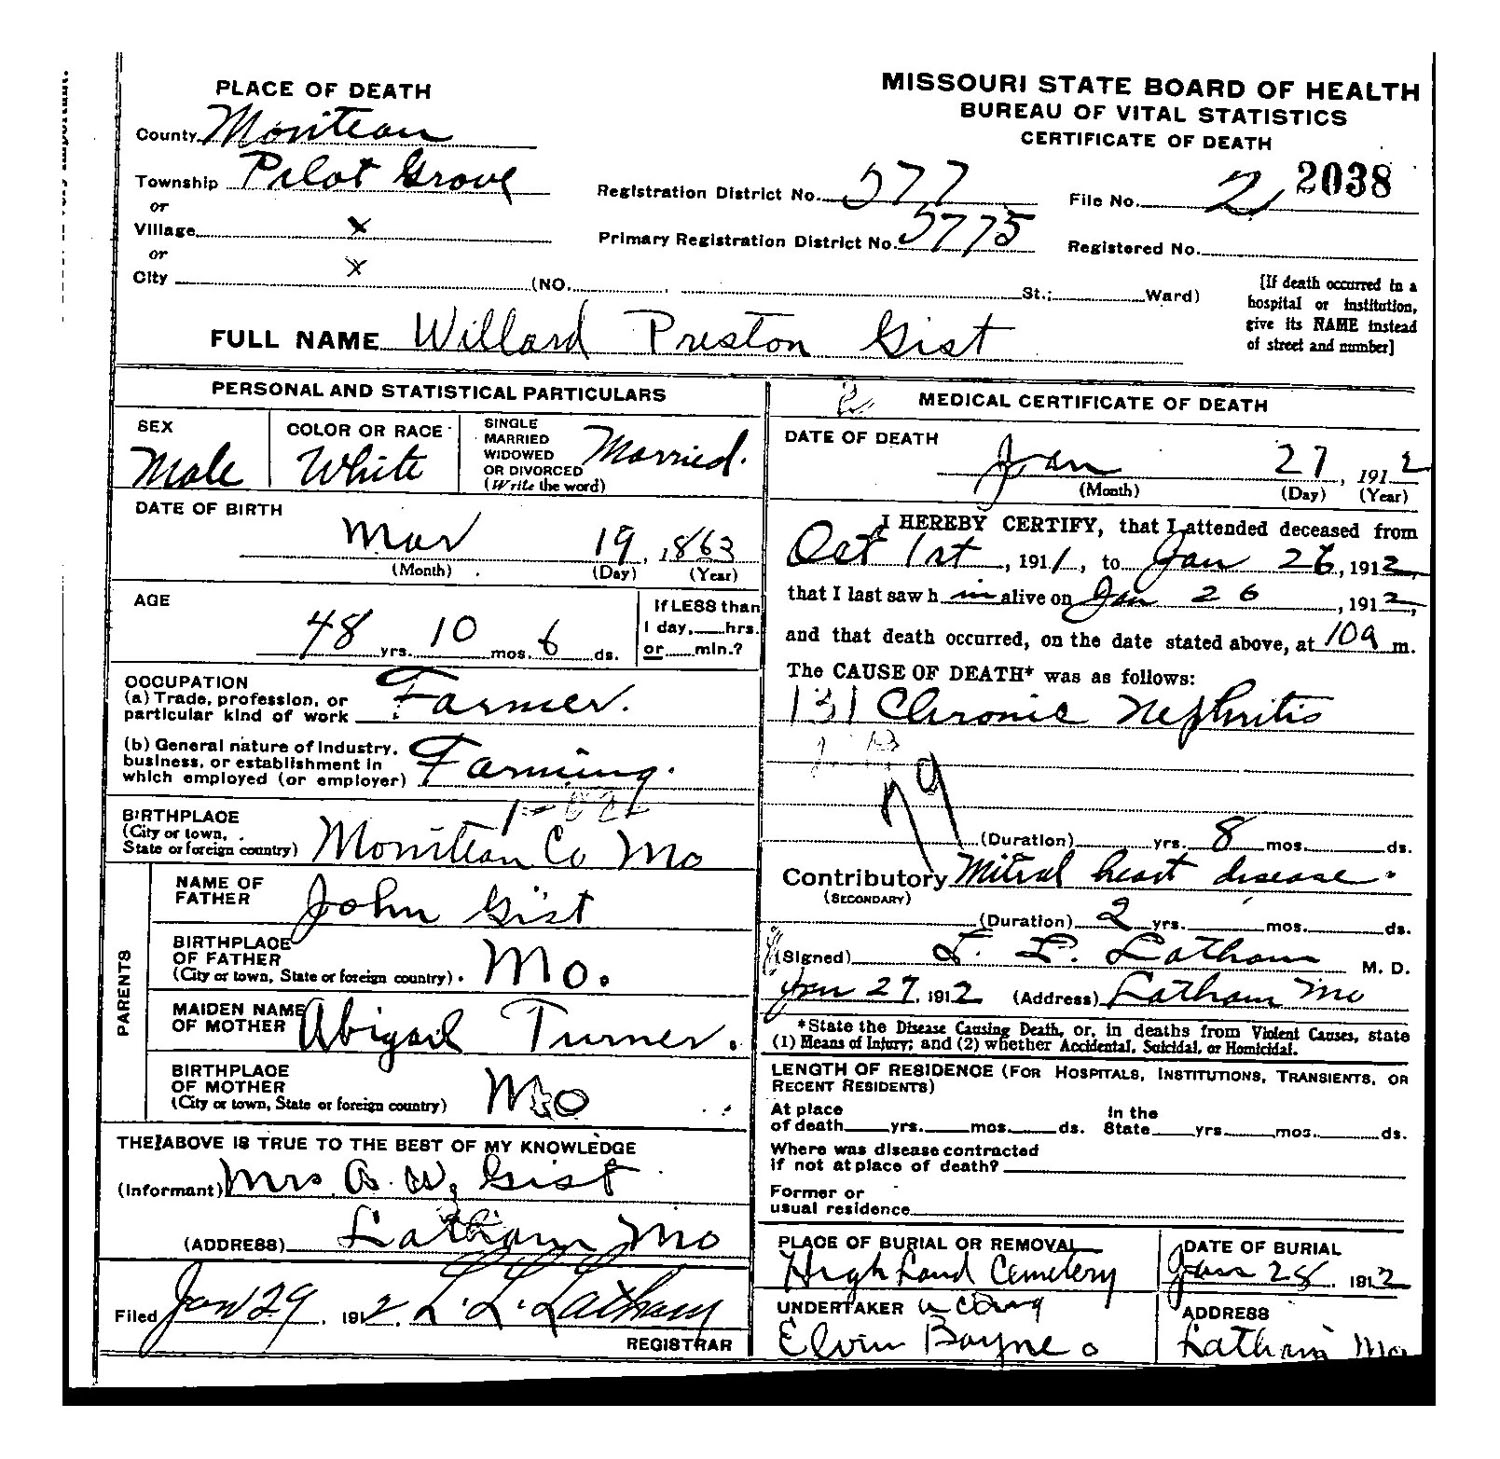 MISSOURI STATE BOARD OF HEALTH
BUREAU OF VITAL STATISTICS
CERTIFICATE OF DEATH
PLACE OF DEATH
County Moniteau
Township Pilot Grove
or
Village x
or
City (NO. St.; Ward)
Registration District No. 577
Primary Registration District No. 5775
File No. 2 2038
Registered No.
[If death occurred in a
hospital or institution,
give its NAME instead
of street and number]
FULL NAME Willard Preston Gist
PERSONAL AND STATISTICAL PARTICULARS
SEX
Male
COLOR OR RACE
White
SINGLE
MARRIED
WIDOWED
OR DIVORCED
(Write the word)
Married.
DATE OF BIRTH
Mar 19, 1863
(Month) (Day) (Year)
AGE
48 yrs. 10 mos. 6 ds.
If LESS than
1 day, hrs.
or min.?
OCCUPATION
(a) Trade, profession, or
particular kind of work Farmer.
(b) General nature of industry,
business, or establishment in
which employed (or employer) Farming.
BIRTHPLACE
(City or town,
State or foreign country) Moniteau Co Mo
PARENTS
NAME OF
FATHER John Gist
BIRTHPLACE
OF FATHER
(City or town, State or foreign country) Mo.
MAIDEN NAME
OF MOTHER Abigail Turner.
BIRTHPLACE
OF MOTHER
(City or town, State or foreign country) Mo
THE ABOVE IS TRUE TO THE BEST OF MY KNOWLEDGE
(Informant) Mrs A. W. Gist
(ADDRESS) Latham Mo
Filed Jan 29, 1912, L. L. Latham
REGISTRAR
MEDICAL CERTIFICATE OF DEATH
DATE OF DEATH
Jan 27, 1912
(Month) (Day) (Year)
I HEREBY CERTIFY, that I attended deceased from
Oct 1st, 1911, to Jan 26, 1912,
that I last saw h im alive on Jan 26, 1912,
and that death occurred, on the date stated above, at 10a m.
The CAUSE OF DEATH* was as follows:
131 Chronic Nephritis
79
(Duration) yrs. 8 mos. ds.
Contributory Mitral heart disease.
(SECONDARY)
(Duration) 2 yrs. mos. ds.
(Signed) L. L. Latham M. D.
Jan 27, 1912 (Address) Latham Mo
*State the Disease Causing Death, or, in deaths from Violent Causes, state
(1) Means of Injury; and (2) whether Accidental, Suicidal, or Homicidal.
LENGTH OF RESIDENCE (FOR HOSPITALS, INSTITUTIONS, TRANSIENTS, OR
RECENT RESIDENTS)
At place
of death yrs. mos. ds.
In the
State yrs. mos. ds.
Where was disease contracted
if not at place of death?
Former or
usual residence
PLACE OF BURIAL OR REMOVAL
Highland Cemetery
DATE OF BURIAL
Jan 28, 1912
UNDERTAKER
Elvin Bayne
ADDRESS
Latham Mo